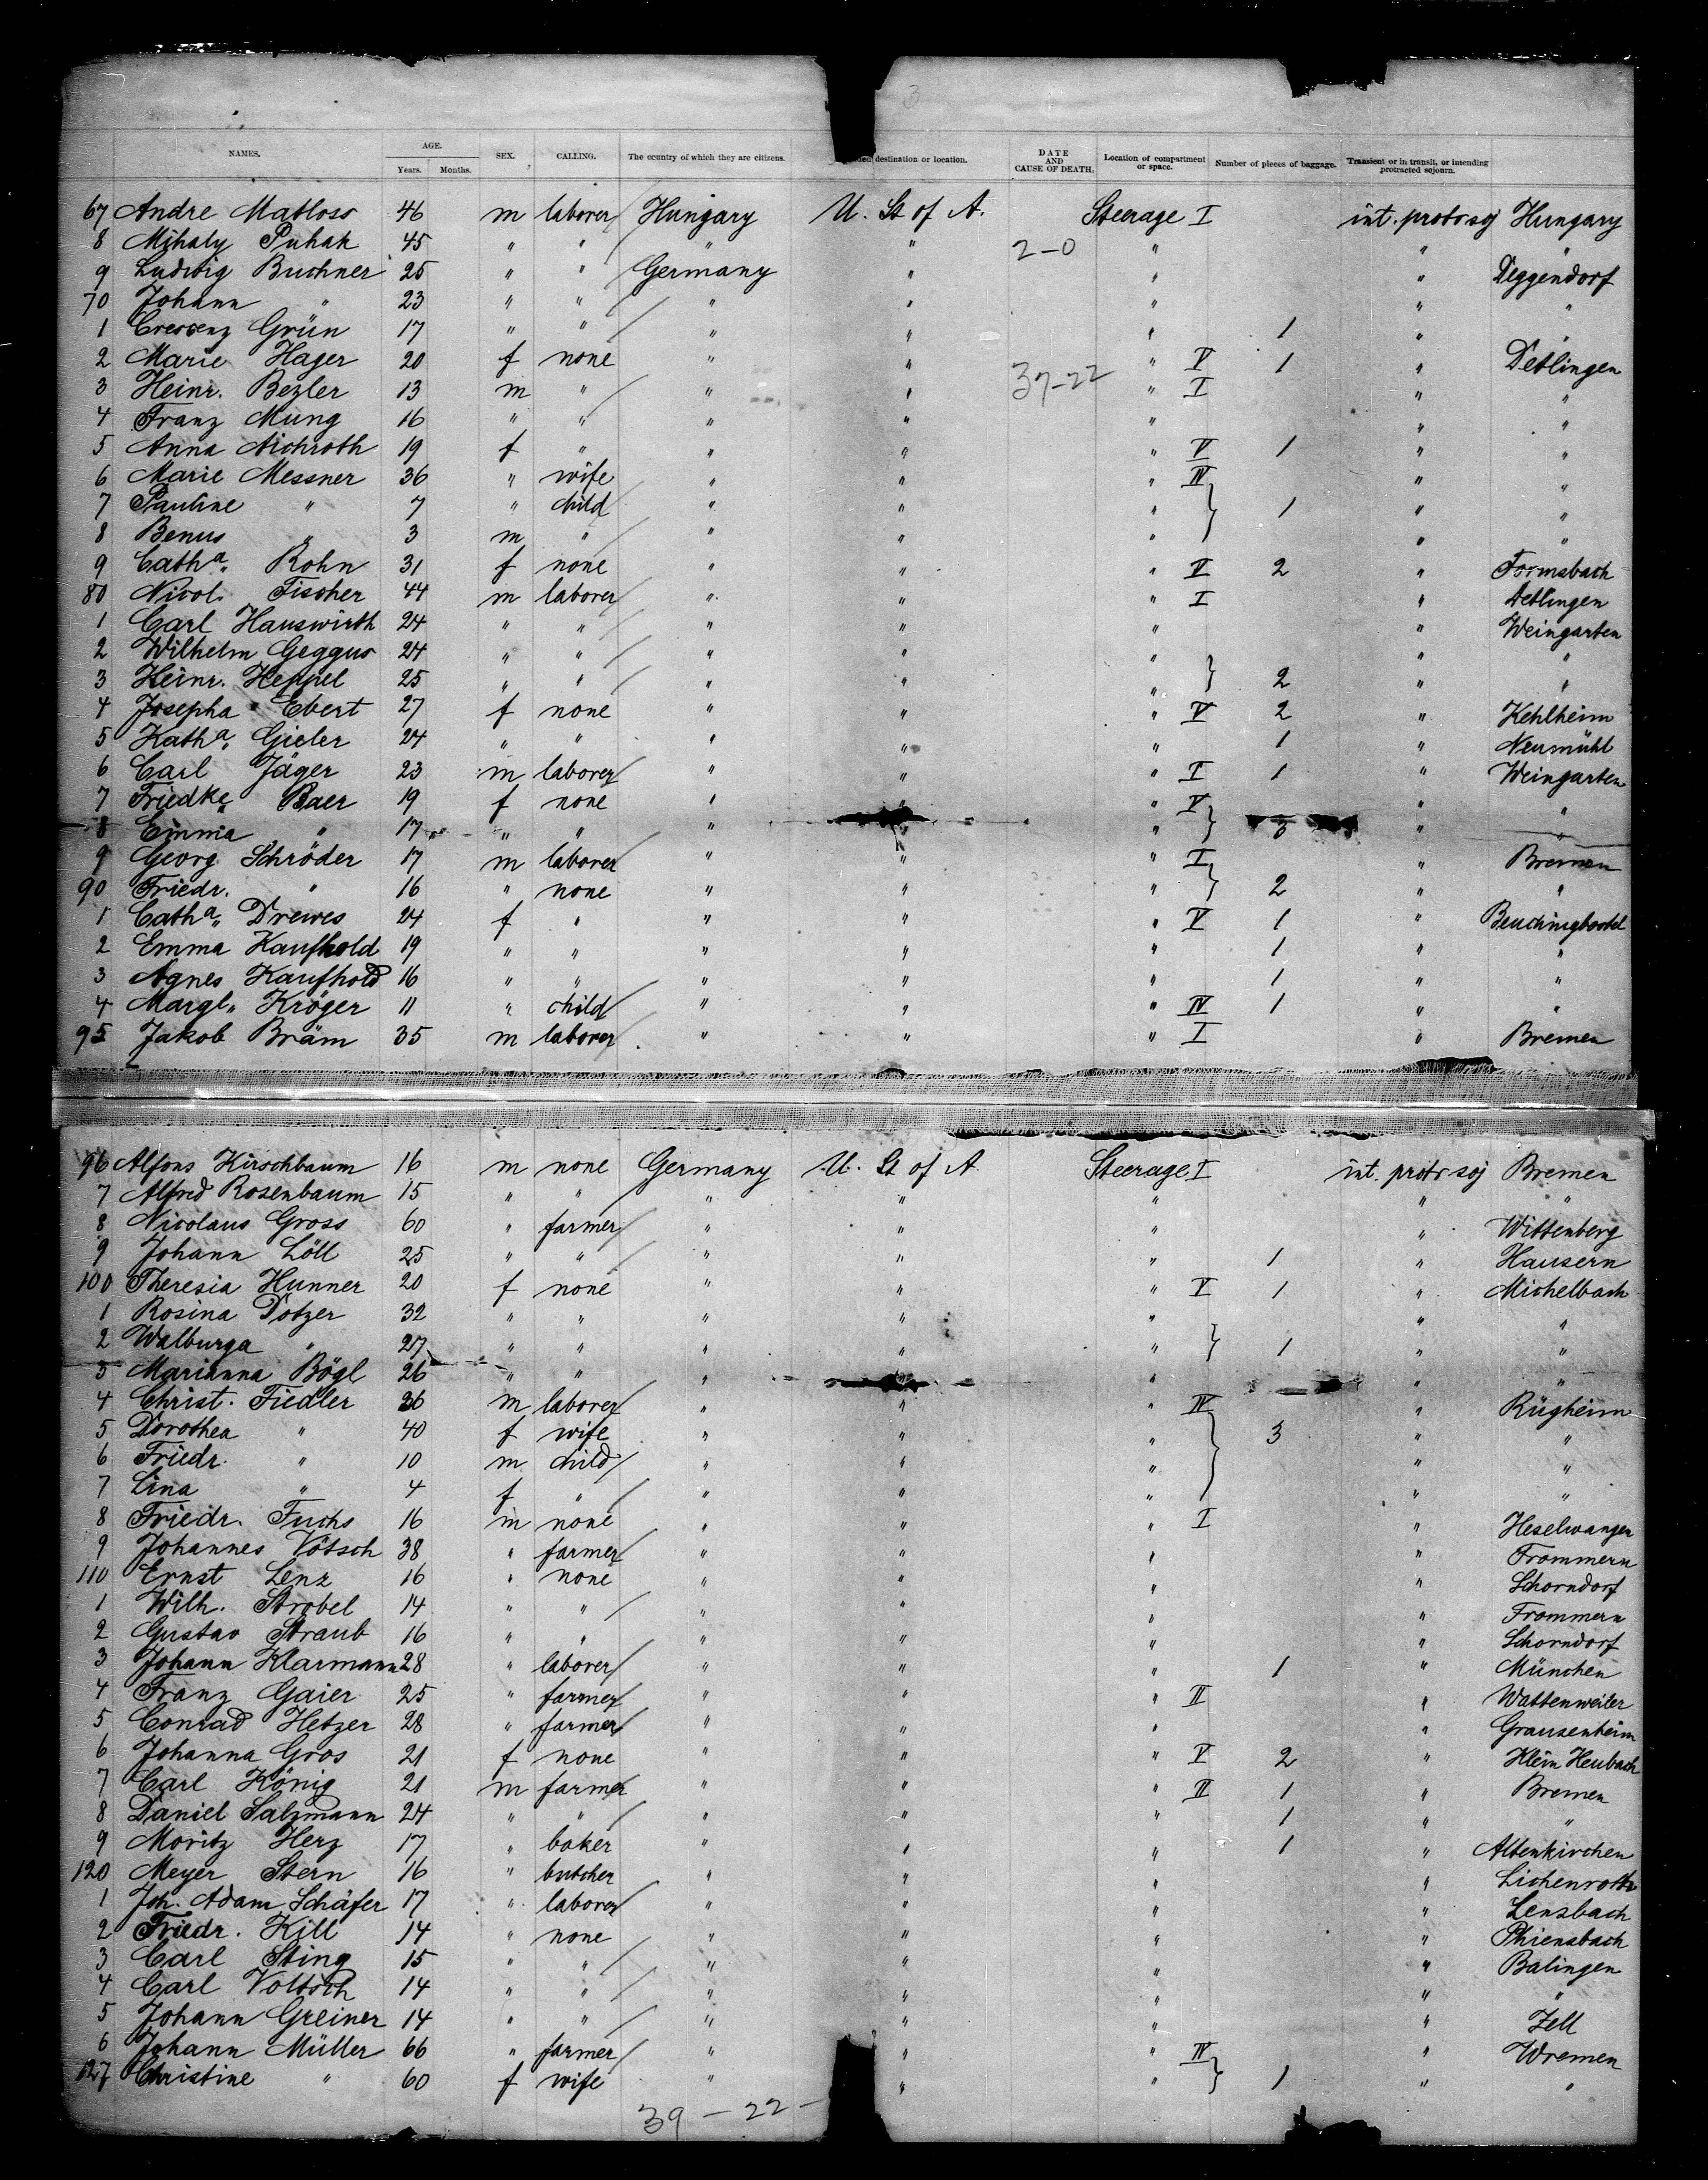 3
NAMES. AGE. Years. Months. SEX. CALLING. The country of which they are citizens. destination or location. DATE AND CAUSE OF DEATH. Location of compartment or space. Number of pieces of baggage. Transient or in transit, or intending protracted sojourn.
67 Andre Matloss 46 m laborer Hungary U. St of A. Steerage I int. protr soj Hungary
8 Mihaly Puhak 45 " " " " 2-0 " " "
9 Ludwig Buchner 25 " " Germany " " " Deggendorf
70 Johann " 23 " " " " " " "
1 Crescenz Grün 17 " " " " " 1 " "
2 Marie Hager 20 f none " " " V 1 " Detlingen
3 Heinr. Bezler 13 m " " " 37-22 " I " "
4 Franz Mung 16 " " " " " " "
5 Anna Aichroth 19 f " " " " V 1 " "
6 Marie Messner 36 " wife " " " IV " "
7 Pauline " 7 " child " " " } 1 " "
8 Benus " 3 m " " " " " "
9 Catha. Rohn 31 f none " " " V 2 " Formsbach
80 Nicol. Fischer 44 m laborer " " " I " Detlingen
1 Carl Hauswirth 24 " " " " " " Weingarten
2 Wilhelm Geggus 24 " " " " " " "
3 Heinr. Heppel 25 " " " " " } 2 " "
4 Josepha Ebert 27 f none " " " V 2 " Kehlheim
5 Katha. Gieler 24 " " " " " 1 " Neumühl
6 Carl Jäger 23 m laborer " " " I 1 " Weingarten
7 Friedke. Baer 19 f none " " " V " "
8 Emma " 17 " " " " " } 3 " "
9 Georg Schröder 17 m laborer " " " I " Bremen
90 Friedr. " 16 " none " " " } 2 " "
1 Catha. Drewes 24 f " " " " V 1 " Beuchingbostel
2 Emma Kaufhold 19 " " " " " 1 " "
3 Agnes Kaufhold 16 " " " " " 1 " "
4 Margt. Kröger 11 " child " " " IV 1 " "
95 Jakob Bräm 35 m laborer " " " I " Bremen
96 Alfons Kirschbaum 16 m none Germany U. St of A. Steerage I int. protr soj Bremen
7 Alfred Rosenbaum 15 " " " " " " "
8 Nicolaus Gross 60 " farmer " " " " Wittenberg
9 Johann Löll 25 " " " " " 1 " Hausern
100 Theresia Hunner 20 f none " " " V 1 " Michelbach
1 Rosina Dotzer 32 " " " " " " "
2 Walburga " 27 " " " " " } 1 " "
3 Marianna Bögl 26 " " " " " " "
4 Christ. Fiedler 36 m laborer " " " IV " Rügheim
5 Dorothea " 40 f wife " " " } 3 " "
6 Friedr. " 10 m child " " " " "
7 Lina " 4 f " " " " " "
8 Friedr. Fuchs 16 m none " " " I " Heselwangen
9 Johannes Vötsch 38 " farmer " " " " Frommern
110 Ernst Lenz 16 " none " " " " Schorndorf
1 Wilh. Strobel 14 " " " " " " Frommern
2 Gustav Straub 16 " " " " " " Schorndorf
3 Johann Klarmann 28 " laborer " " " 1 " München
4 Franz Gaier 25 " farmer " " " II " Wattenweiler
5 Conrad Hetzer 28 " farmer " " " " Grausenheim
6 Johanna Gros 21 f none " " " V 2 " Klein Heubach
7 Carl König 21 m farmer " " " II 1 " Bremen
8 Daniel Salzmann 24 " " " " " 1 " "
9 Moritz Herz 17 " baker " " " 1 " Altenkirchen
120 Meyer Stern 16 " butcher " " " " Lichenroth
1 Joh. Adam Schäfer 17 " laborer " " " " Lensbach
2 Friedr. Kill 14 " none " " " " Phiensbach
3 Carl Sting 15 " " " " " " Balingen
4 Carl Voltsch 14 " " " " " " "
5 Johann Greiner 14 " " " " " " Zell
6 Johann Müller 66 " farmer " " " IV " Wremen
127 Christine " 60 f wife " " " } 1 " "
39 - 22 -